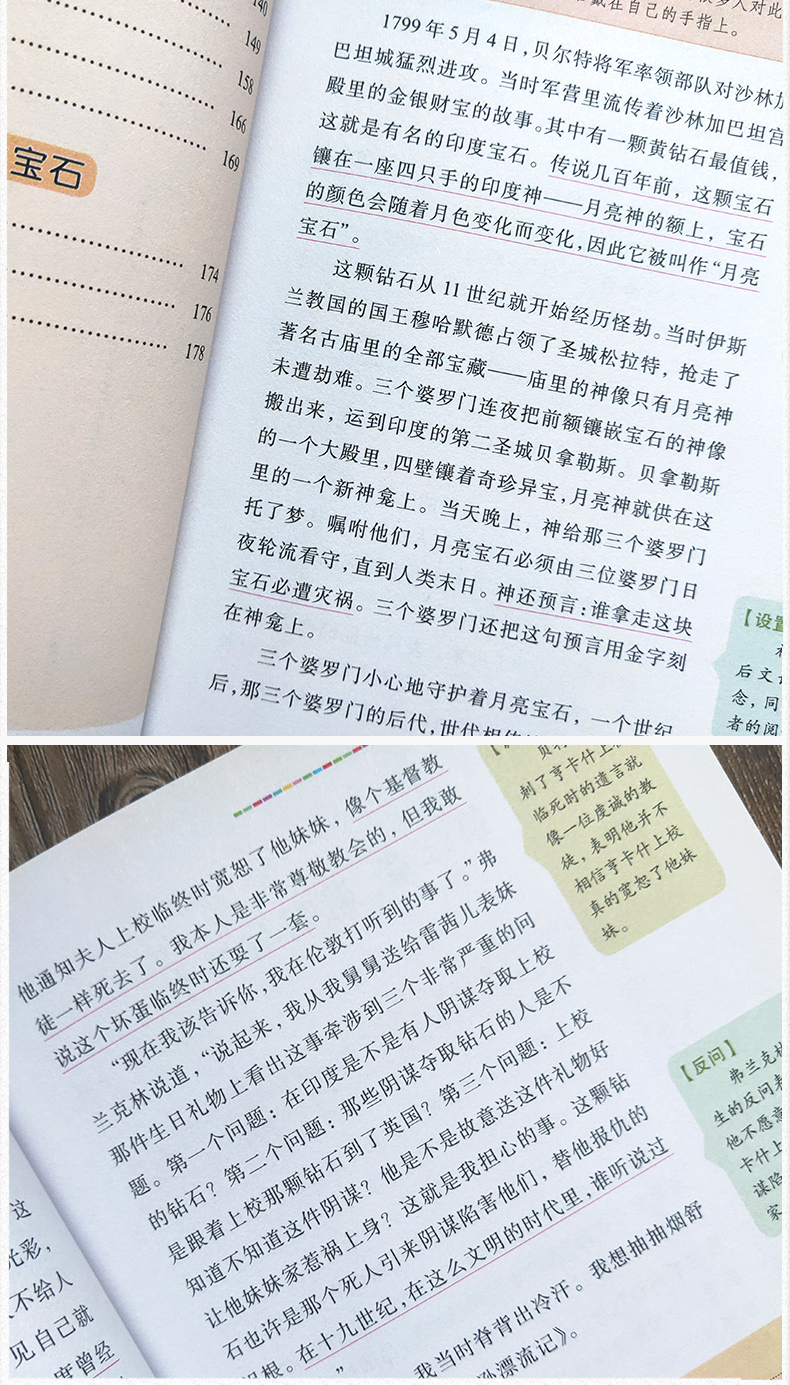 140
149
158
166
169
宝石
174
176
178
戴在自己的手指上。
1799年5月4日，贝尔特将军率领部队对沙林加
巴坦城猛烈进攻。当时军营里流传着沙林加巴坦宫
殿里的金银财宝的故事。其中有一颗黄钻石最值钱，
这就是有名的印度宝石。传说几百年前，这颗宝石
镶在一座四只手的印度神——月亮神的额上，宝石
的颜色会随着月色变化而变化，因此它被叫作“月亮
宝石”。
这颗钻石从11世纪就开始经历怪劫。当时伊斯
兰教国的国王穆哈默德占领了圣城松拉特，抢走了
著名古庙里的全部宝藏——庙里的神像只有月亮神
未遭劫难。三个婆罗门连夜把前额镶嵌宝石的神像
搬出来，运到印度的第二圣城贝拿勒斯。贝拿勒斯
的一个大殿里，四壁镶着奇珍异宝，月亮神就供在这
里的一个新神龛上。当天晚上，神给那三个婆罗门
托了梦。嘱咐他们，月亮宝石必须由三位婆罗门日
夜轮流看守，直到人类末日。神还预言：谁拿走这块
宝石必遭灾祸。三个婆罗门还把这句预言用金字刻
在神龛上。
三个婆罗门小心地守护着月亮宝石，一个世纪
后，那三个婆罗门的后代，世代相传
【设置
后文
念，同
者的阅
他通知夫人上校临终时宽恕了他妹妹，像个基督教
徒一样死去了。我本人是非常尊敬教会的，但我敢
说这个坏蛋临终时还耍了一套。
“现在我该告诉你，我在伦敦打听到的事了。”弗
兰克林说道，“说起来，我从我舅舅送给雷茜儿表妹
那件生日礼物上看出这事牵涉到三个非常严重的问
题。第一个问题：在印度是不是有人阴谋夺取上校
的钻石？第二个问题：那些阴谋夺取钻石的人是不
是跟着上校那颗钻石到了英国？第三个问题：上校
知道不知道这件阴谋？他是不是故意送这件礼物好
让他妹妹家惹祸上身？这就是我担心的事。这颗钻
石也许是那个死人引来阴谋陷害他们，替他报仇的
祸根。在十九世纪，在这么文明的时代里，谁听说过
我当时脊背出冷汗。我想抽抽烟舒
漂流记》。
刺了亨卡什上
临死时的遗言就
像一位虔诚的教
徒，表明他并不
相信亨卡什上校
真的宽恕了他妹
妹。
【反问】
弗兰克林
生的反问
他不愿意
卡什上
谋陷
家
这
光彩，
不给人
见自己就
度曾经